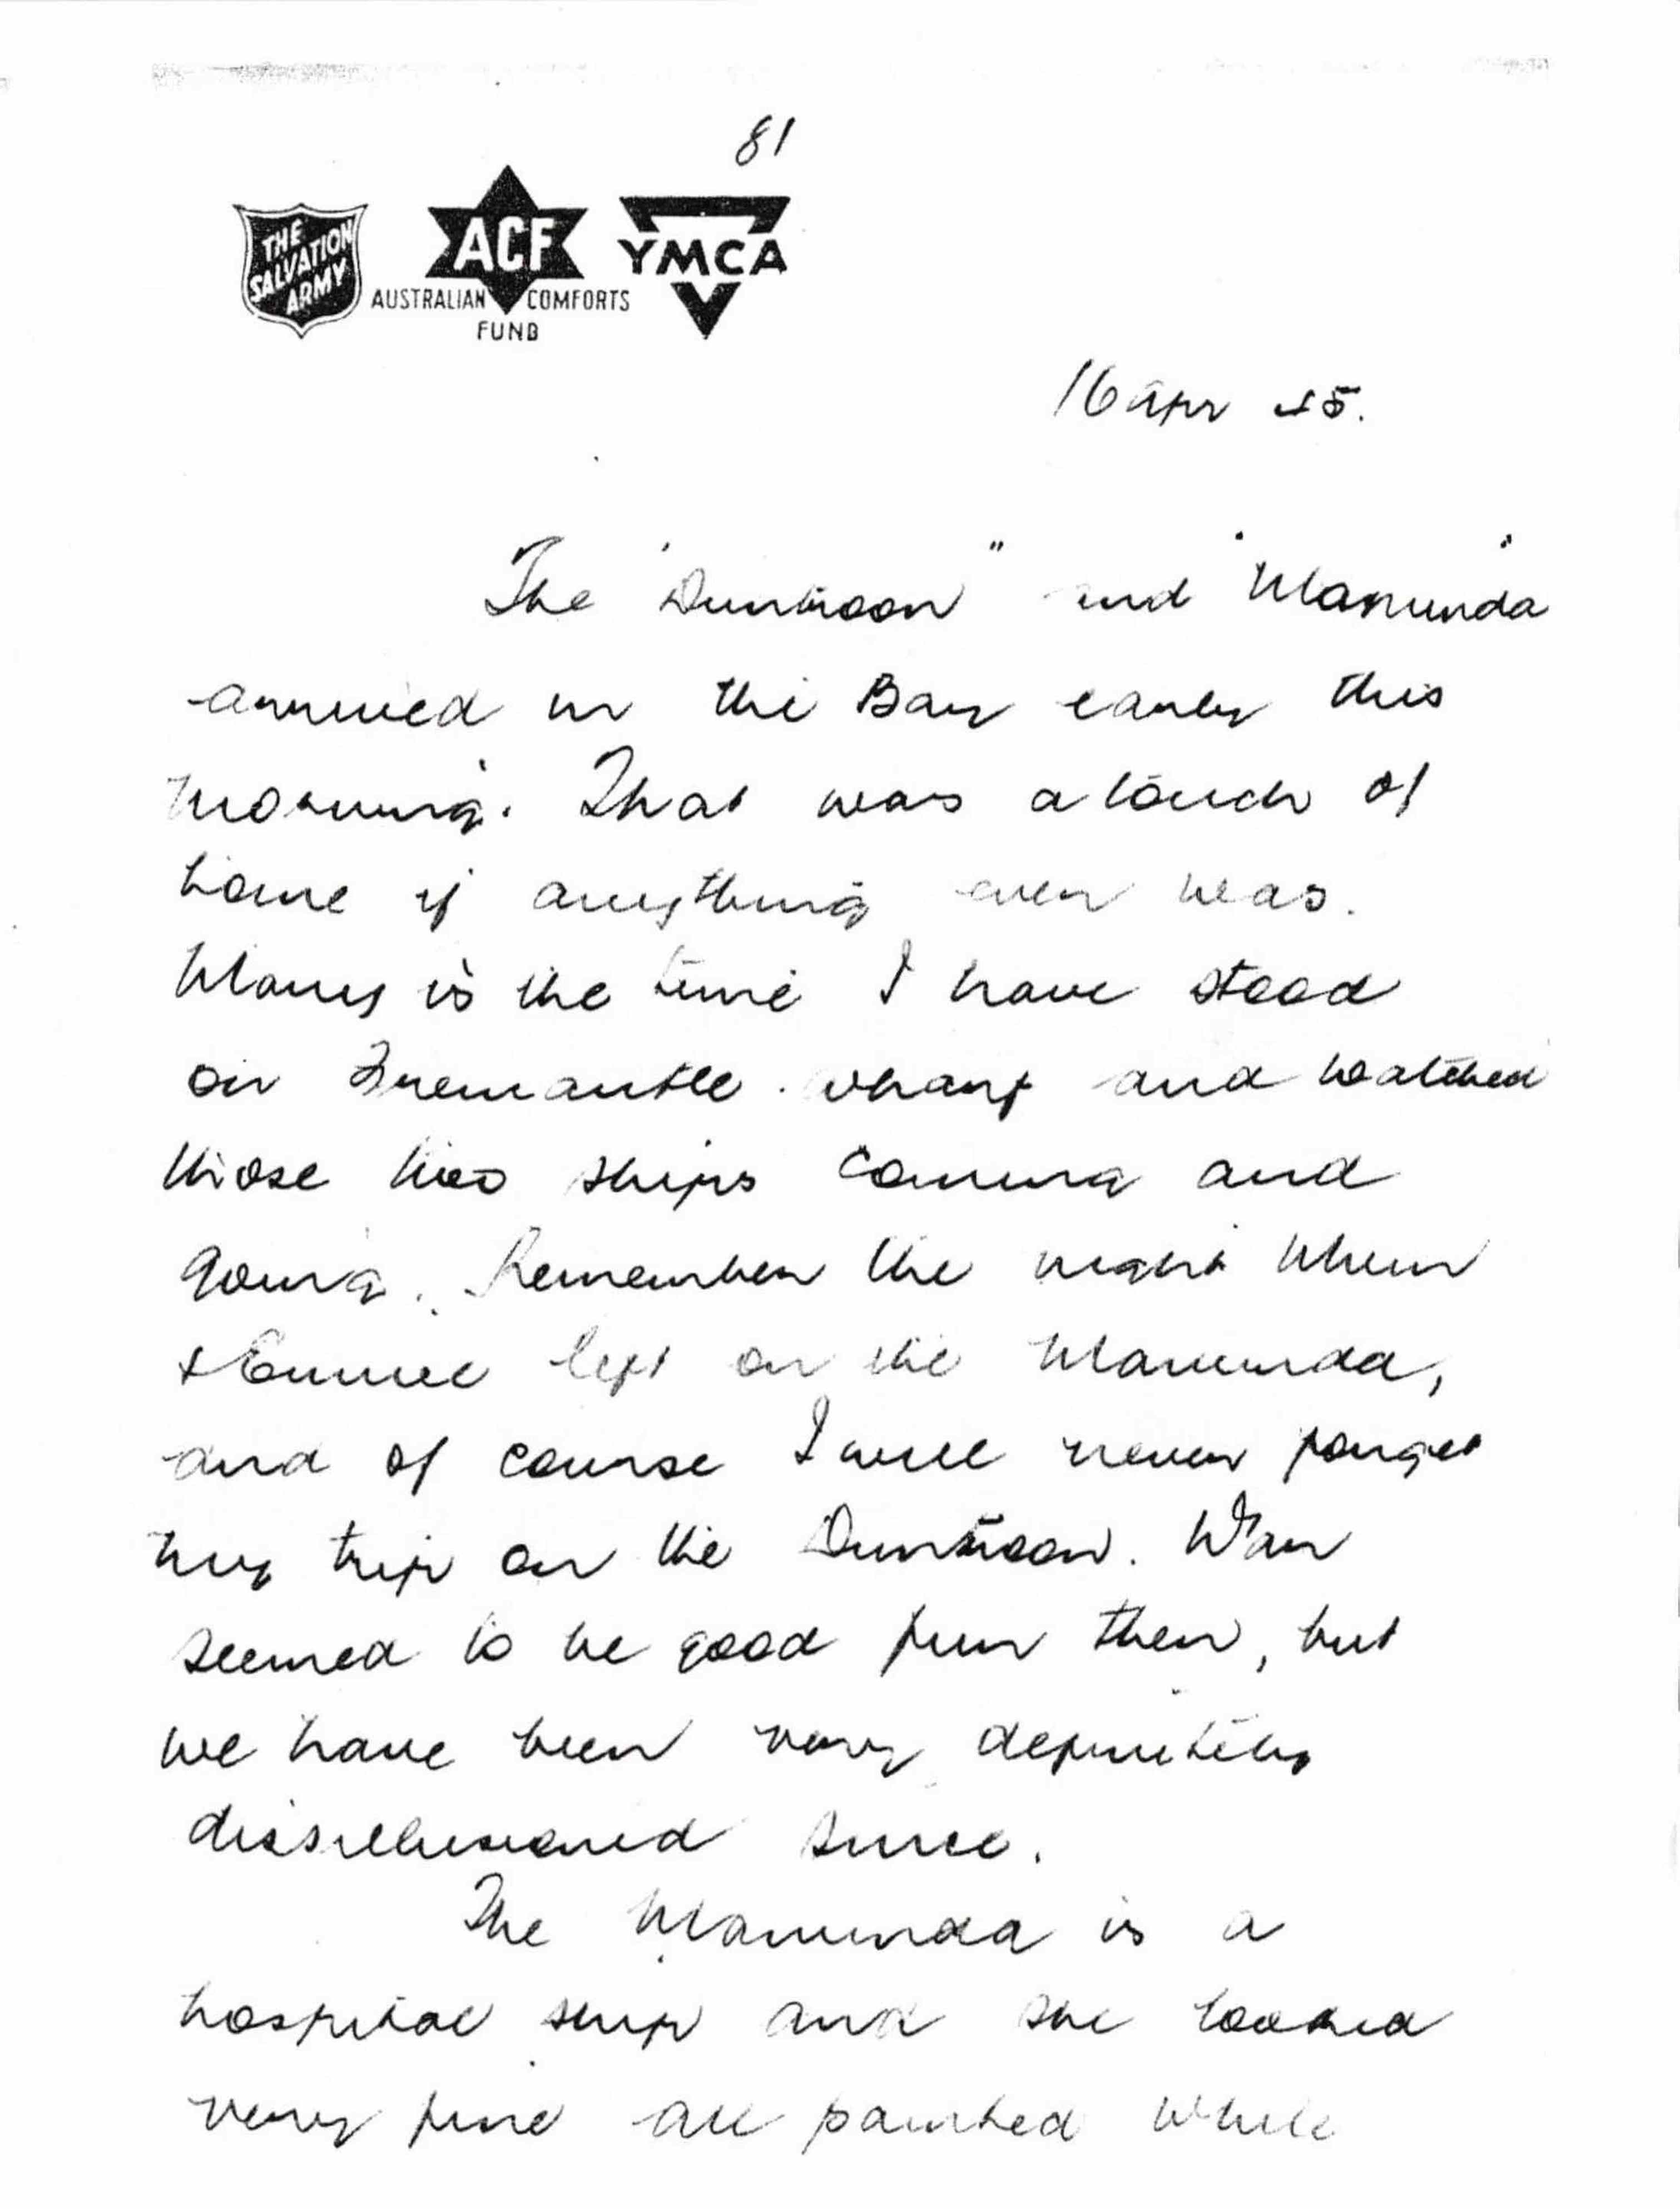 81
THE SALVATION ARMY
ACF
AUSTRALIAN COMFORTS FUND
YMCA
16 Apr 45.
The "Duntroon" and "Manunda"
arrived in the Bay early this
morning. That was a touch of
home if anything ever was.
Many is the time I have stood
on Fremantle wharf and watched
those two ships coming and
going. Remember the night when
left on the Manunda,
and of course I will never forget
my trip on the Duntroon. War
seemed to be good fun then, but
we have been very definitely
dissillusioned since.
The Manunda is a
hospital ship and she looked
very fine all painted white